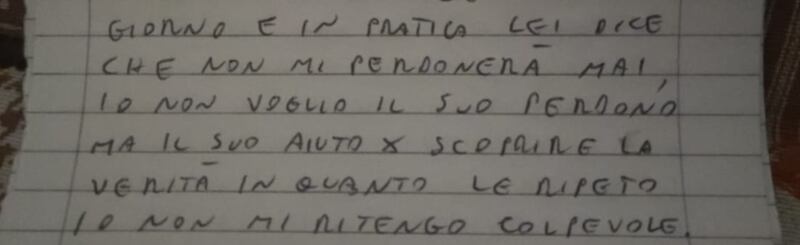 GIORNO E IN PRATICA LEI DICE
CHE NON MI PERDONERÀ MAI,
IO NON VOGLIO IL SUO PERDONO
MA IL SUO AIUTO X SCOPRIRE LA
VERITÀ IN QUANTO LE RIPETO
IO NON MI RITENGO COLPEVOLE.